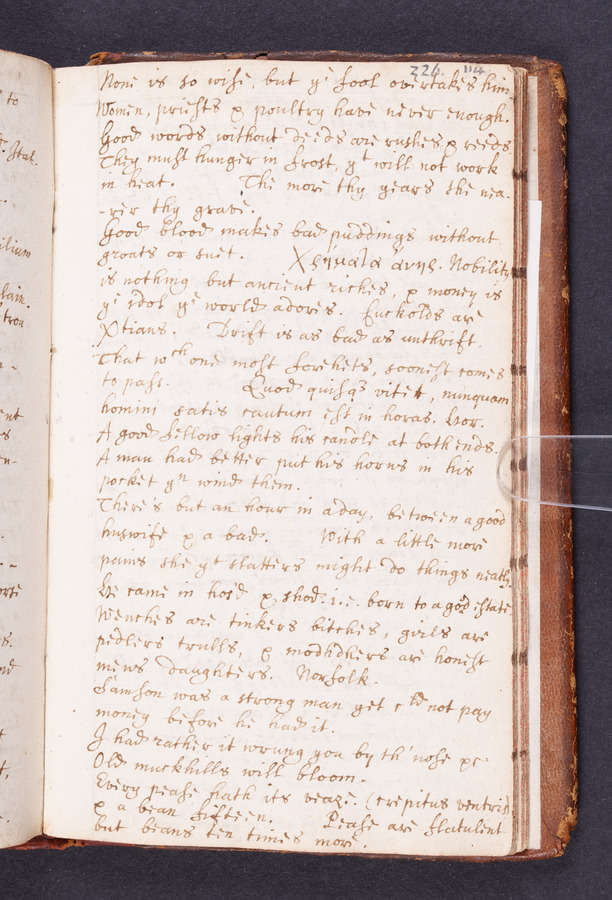 226. 114
None is so wise, but ye fool overtakes him
Women, priests & poultry have never enough.
Good words without deeds are rushes & reeds
They must hunger in frost, yt will not work
in heat. The more thy years the nea-
rer thy grave.
Good blood makes bad puddings without
groats or suet. Χρήματα ἀνήρ. Nobility
is nothing but ancient riches, & money is
ye idol ye world adores. Cuckolds are
Xtians. Drift is as bad as unthrift.
That wch one most forehets, soonest comes
to pass. Quod quisqs vitet, nunquam
homini satis cautum est in horas. Hor.
A good fellow lights his candle at both ends.
A man had better put his horns in his
pocket yn wind them.
There's but an hour in a day, between a good
huswife & a bad. With a little more
pains she yt slatters might do things neatly.
He came in hos'd & shod. i.e. born to a good estate
Wenches are tinkers bitches, girls are
pedlers trulls, & modhdhers are honest
mens daughters. Norfolk.
Samson was a strong man yet cld not pay
money before he had it.
I had rather it wrung you by th' nose &c
Old muckhills will bloom.
Every pease hath its veaze. (crepitus ventris)
& a bean fifteen. Pease are flatulent
but beans ten times more.
to
Stal.
ilium
lain.
ent
en-